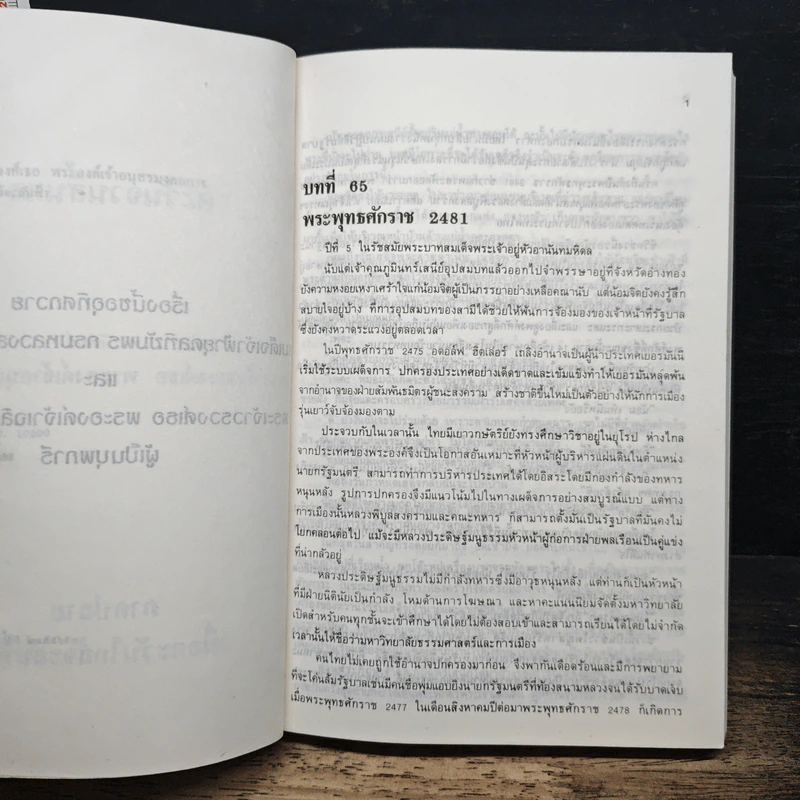 1
บทที่ 65
พระพุทธศักราช 2481
ปีที่ 5 ในรัชสมัยพระบาทสมเด็จพระเจ้าอยู่หัวอานันทมหิดล
นับแต่เจ้าคุณภูมินทร์เสนีย์อุปสมบทแล้วออกไปจำพรรษาอยู่ที่จังหวัดอ่างทอง
ยังความหงอยเหงาเศร้าใจแก่น้อมจิตผู้เป็นภรรยาอย่างเหลือคณานับ แต่น้อมจิตยังคงรู้สึก
สบายใจอยู่บ้าง ที่การอุปสมบทของสามีได้ช่วยให้พ้นการจ้องมองของเจ้าหน้าที่รัฐบาล
ซึ่งยังคงหวาดระแวงอยู่ตลอดเวลา
ในปีพุทธศักราช 2475 อดอล์ฟ ฮิตเล่อร์ เถลิงอำนาจเป็นผู้นำประเทศเยอรมันนี
เริ่มใช้ระบบเผด็จการ ปกครองประเทศอย่างเด็ดขาดและเข้มแข็งทำให้เยอรมันหลุดพ้น
จากอำนาจของฝ่ายสัมพันธมิตรผู้ชนะสงคราม สร้างชาติขึ้นใหม่เป็นตัวอย่างให้นักการเมือง
รุ่นเยาว์จับจ้องมองตาม
ประจวบกับในเวลานั้น ไทยมีเยาวกษัตริย์ยังทรงศึกษาวิชาอยู่ในยุโรป ห่างไกล
จากประเทศของพระองค์จึงเป็นโอกาสอันเหมาะที่หัวหน้าผู้บริหารแผ่นดินในตำแหน่ง
นายกรัฐมนตรี สามารถทำการบริหารประเทศได้โดยอิสระโดยมีกองกำลังของทหาร
หนุนหลัง รูปการปกครองจึงมีแนวโน้มไปในทางเผด็จการอย่างสมบูรณ์แบบ แต่ทาง
การเมืองนั้นหลวงพิบูลสงครามและคณะทหาร ก็สามารถตั้งมั่นเป็นรัฐบาลที่มั่นคงไม่
โยกคลอนต่อไป แม้จะมีหลวงประดิษฐ์มนูธรรมหัวหน้าผู้ก่อการฝ่ายพลเรือนเป็นคู่แข่ง
ที่น่ากลัวอยู่
หลวงประดิษฐ์มนูธรรมไม่มีกำลังทหารซึ่งมีอาวุธหนุนหลัง แต่ท่านก็เป็นหัวหน้า
ที่มีฝ่ายนิตินัยเป็นกำลัง โหมด้านการโฆษณา และหาคะแนนนิยมจัดตั้งมหาวิทยาลัย
เปิดสำหรับคนทุกชั้นจะเข้าศึกษาได้โดยไม่ต้องสอบเข้าและสามารถเรียนได้โดยไม่จำกัด
เวลานั้นให้ชื่อว่ามหาวิทยาลัยธรรมศาสตร์และการเมือง
คนไทยไม่เคยถูกใช้อำนาจปกครองมาก่อน จึงพากันเดือดร้อนและมีการพยายาม
ที่จะโค่นล้มรัฐบาลเช่นมีคนชื่อพุ่มแอบยิงนายกรัฐมนตรีที่ท้องสนามหลวงจนได้รับบาดเจ็บ
เมื่อพระพุทธศักราช 2477 ในเดือนสิงหาคมปีต่อมาพระพุทธศักราช 2478 ก็เกิดการ